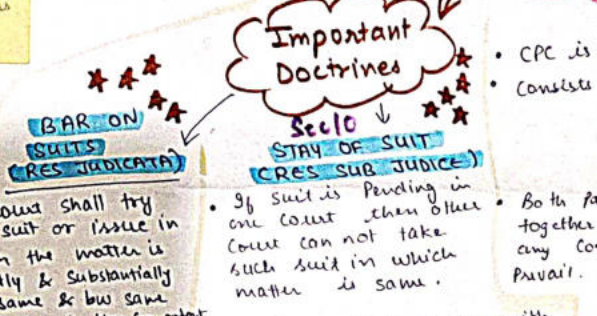 Important
Doctrines
BAR ON
SUITS
(RES JUDICATA)
court shall try
suit or issue in
the matter is
& substantially
same & bw same
Sec10
STAY OF SUIT
(RES SUB JUDICE)
• If suit is Pending in
one court then other
Court can not take
such suit in which
matter is same.
• CPC is
• Consists
• Both Pa
together
any Co
Prevail.